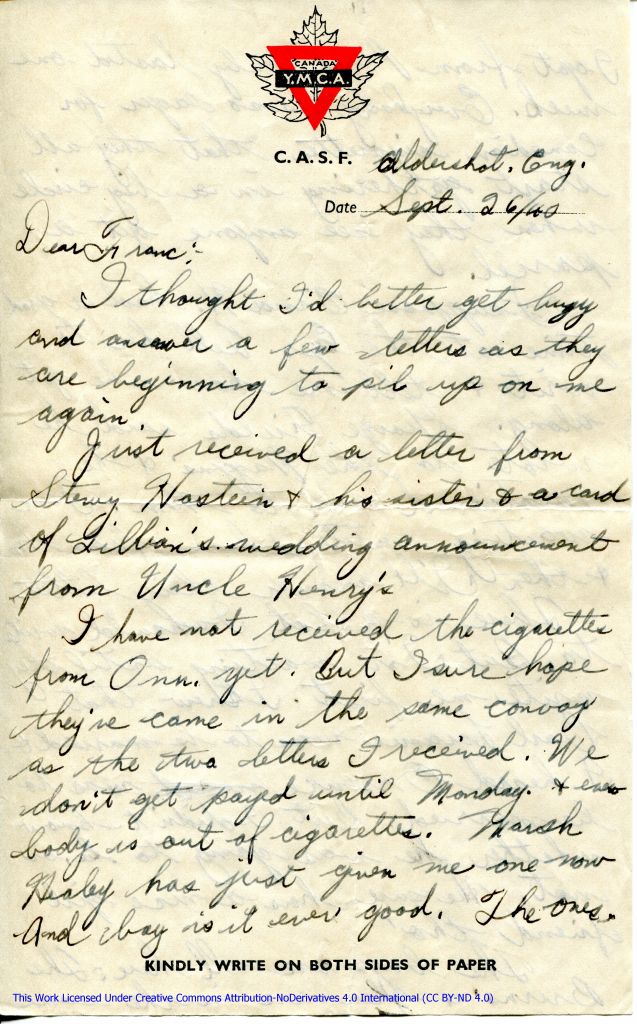 CANADA
Y.M.C.A.
C. A. S. F.
Aldershot. Eng.
Date Sept. 26/40
Dear Franc:-
I thought I'd better get buzy
and answer a few letters as they
are beginning to pil up on me
again.
Just received a letter from
Stewy Hostein & his sister & a card
of Lillian's wedding announcement
from Uncle Henry's
I have not received the cigarettes
from Onn. yet. But I sure hope
they've come in the same convoy
as the two letters I received. We
don't get payd until Monday. & every
body is out of cigarettes. Marsh
Healey has just given me one now
And boy is it ever good. The ones.
KINDLY WRITE ON BOTH SIDES OF PAPER
This Work Licensed Under Creative Commons Attribution-NoDerivatives 4.0 International (CC BY-ND 4.0)